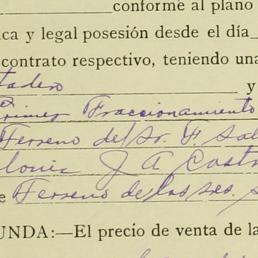 conforme al plano
ca y legal posesión desde el día
contrato respectivo, teniendo una
tadero y
Primer Fraccionamiento
Terreno del Sr. F. Sal
J A Castr
e Terreno de los Srs. S
UNDA:—El precio de venta de la